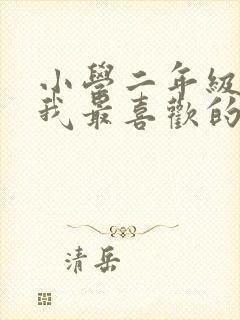 小學二年級
我最喜歡的
清岳